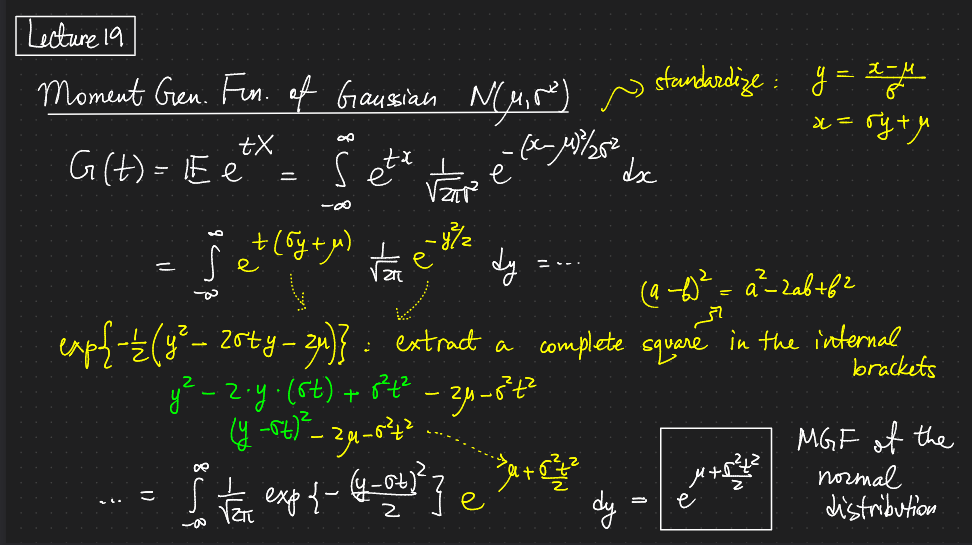 Lecture 19
Moment Gen. Fun. of Gaussian N(μ,σ²)
standardize : y = (x-μ)/σ
x = σy + μ
G(t) = 𝔼 e^{tX} = ∫_{-∞}^{∞} e^{tx} 1/√(2πσ²) e^{-(x-μ)²/2σ²} dx
= ∫_{-∞}^{∞} e^{t(σy+μ)} 1/√(2π) e^{-y²/2} dy = ...
(a-b)² = a² - 2ab + b²
exp{-1/2(y² - 2σty - 2μ)} : extract a complete square in the internal
brackets
y² - 2·y·(σt) + σ²t² - 2μ - σ²t²
(y-σt)² - 2μ - σ²t²
... = ∫_{-∞}^{∞} 1/√(2π) exp{-(y-σt)²/2} e^{μ+σ²t²/2} dy = e^{μ+σ²t²/2}
MGF of the
normal
distribution